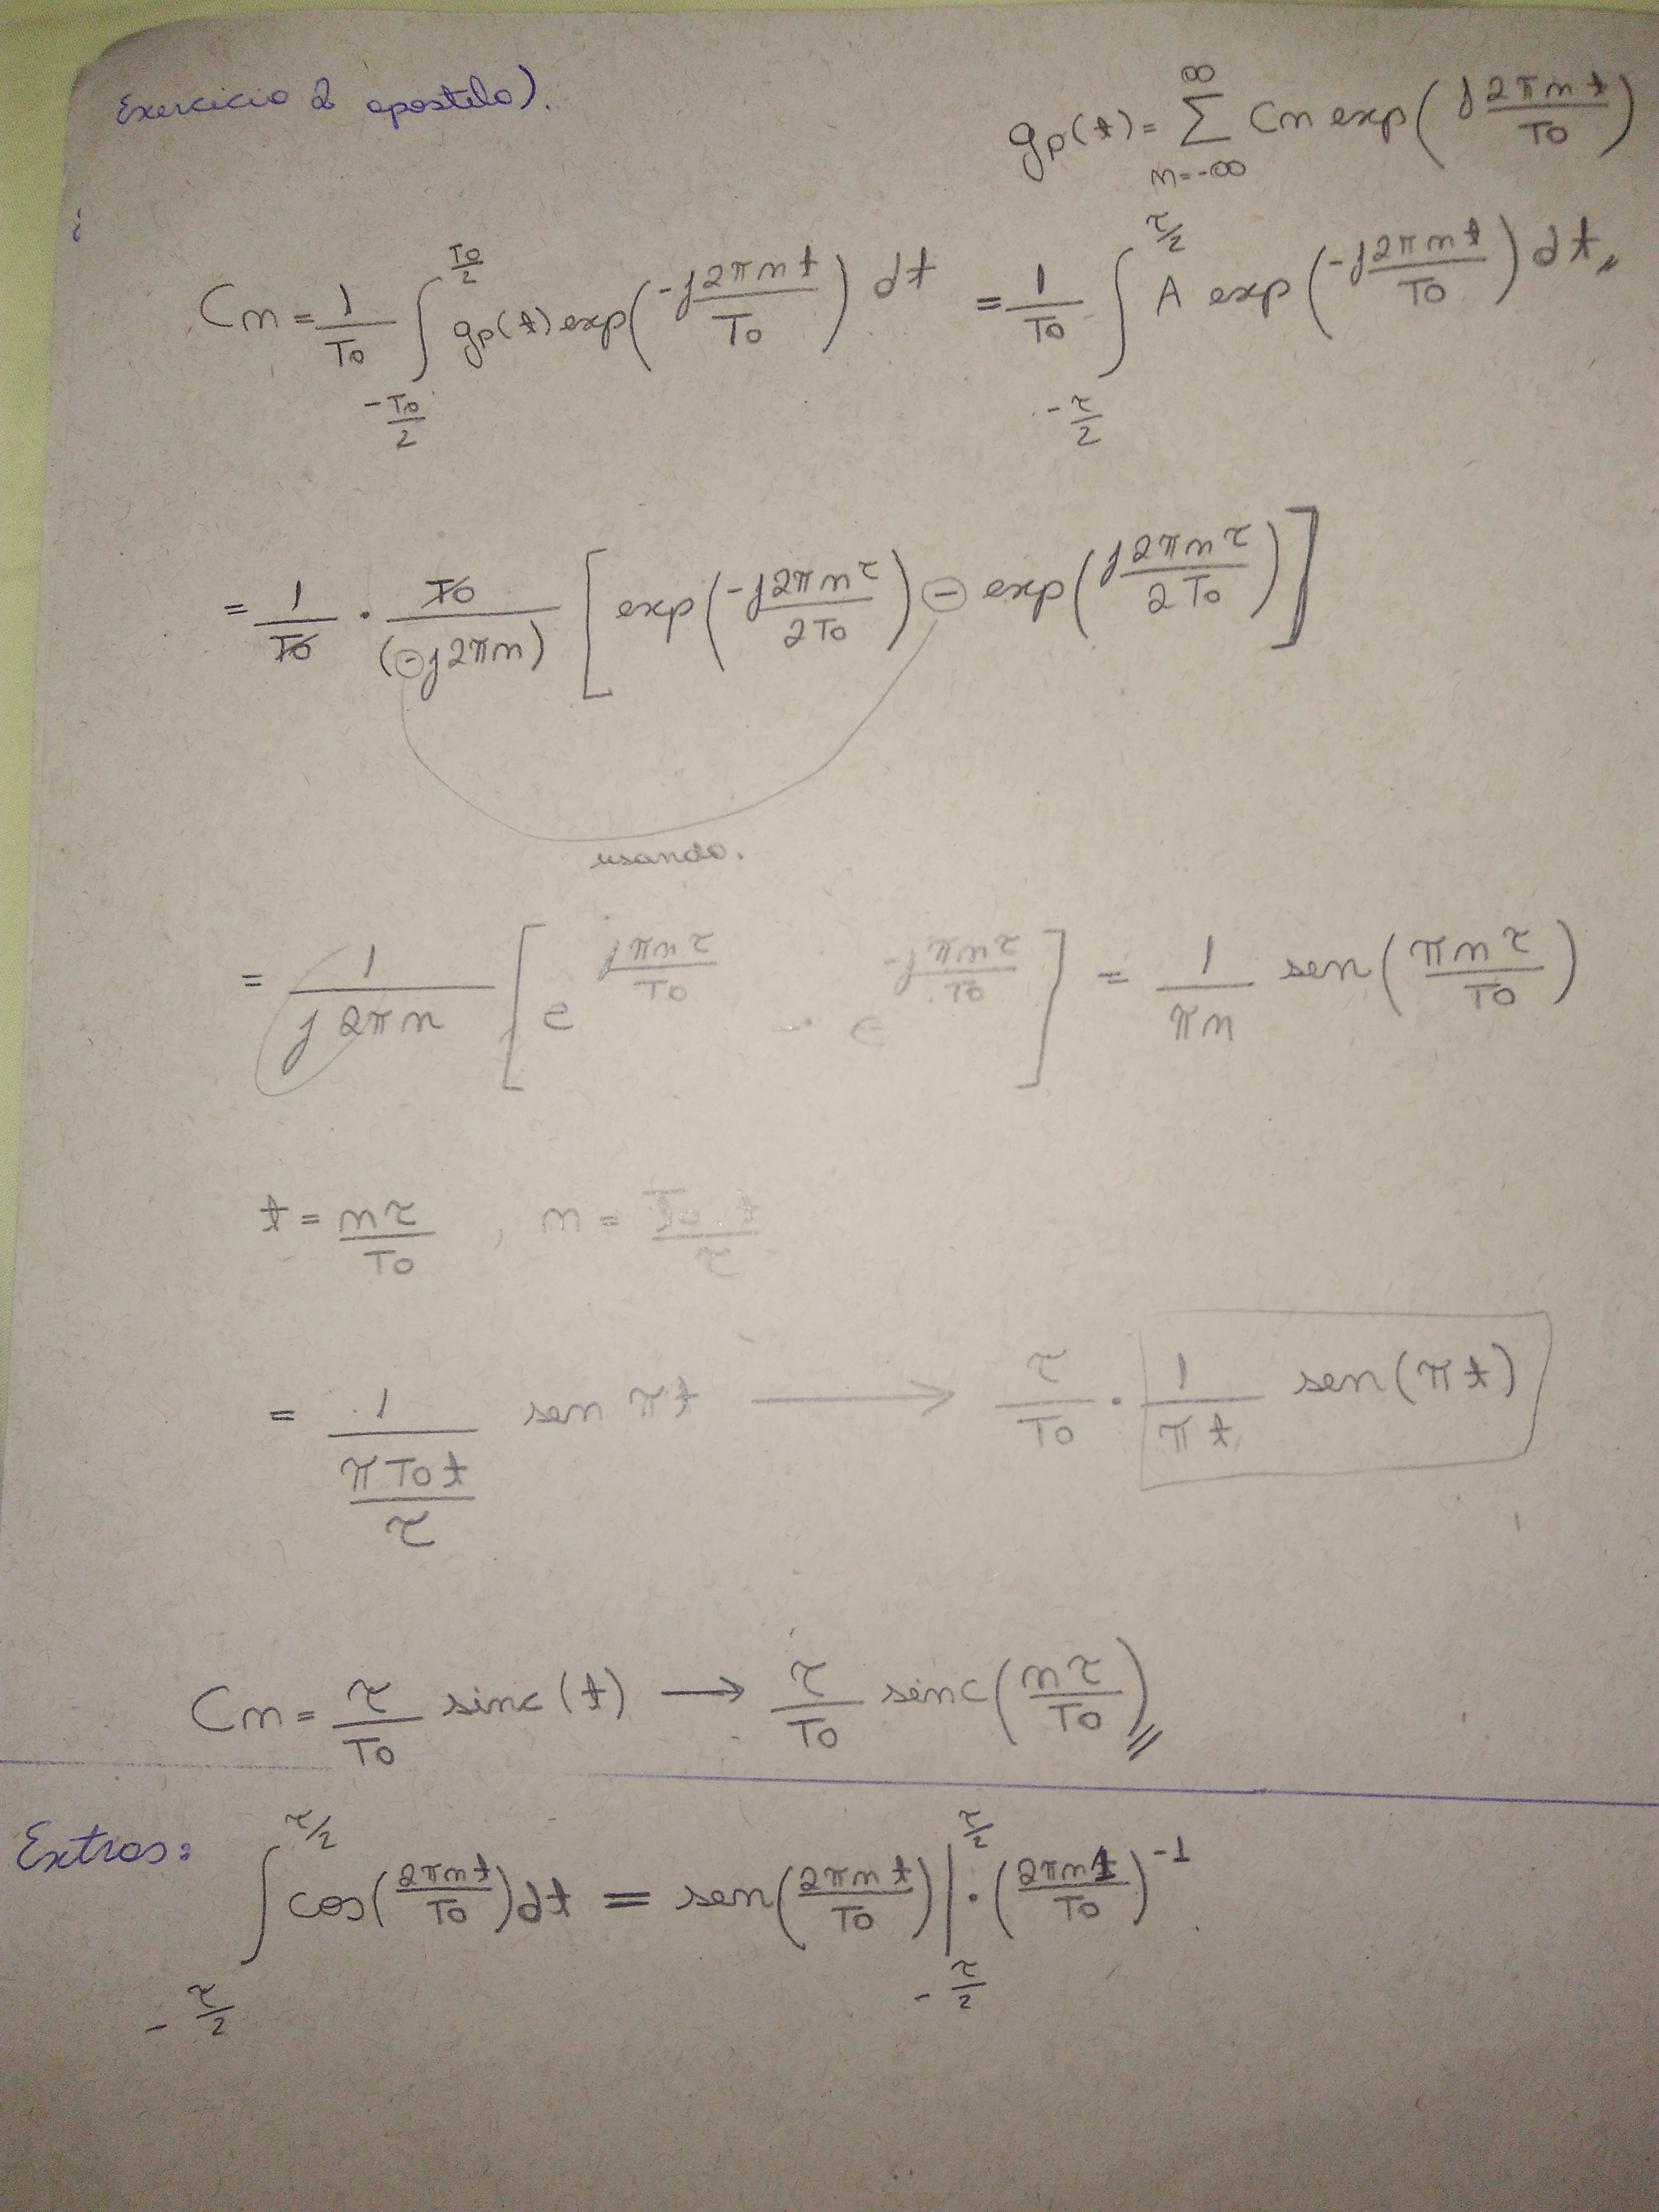 Exercicio 2 apostila).
gp(t) = ∑_{n=-∞}^{∞} Cn exp(j2πnt/T0)
Cn = 1/T0 ∫_{-T0/2}^{T0/2} gp(t) exp(-j2πnt/T0) dt = 1/T0 ∫_{-τ/2}^{τ/2} A exp(-j2πnt/T0) dt,,
= 1/T0 · T0/(-j2πn) [exp(-j2πnτ/2T0) - exp(j2πnτ/2T0)]
usando.
= 1/(j2πn) [e^{jπnτ/T0} - e^{-jπnτ/T0}] = 1/(πn) sen(πnτ/T0)
t = nτ/T0 , n = T0.t/τ
= 1/(πT0t/τ) sen πt ⟶ τ/T0 · 1/(πt) sen(πt)
Cn = τ/T0 sinc(t) → τ/T0 senc(nτ/T0)//
Extras: ∫_{-τ/2}^{τ/2} cos(2πnt/T0)dt = sen(2πnt/T0)|_{-τ/2}^{τ/2} · (2πn1/T0)^{-1}